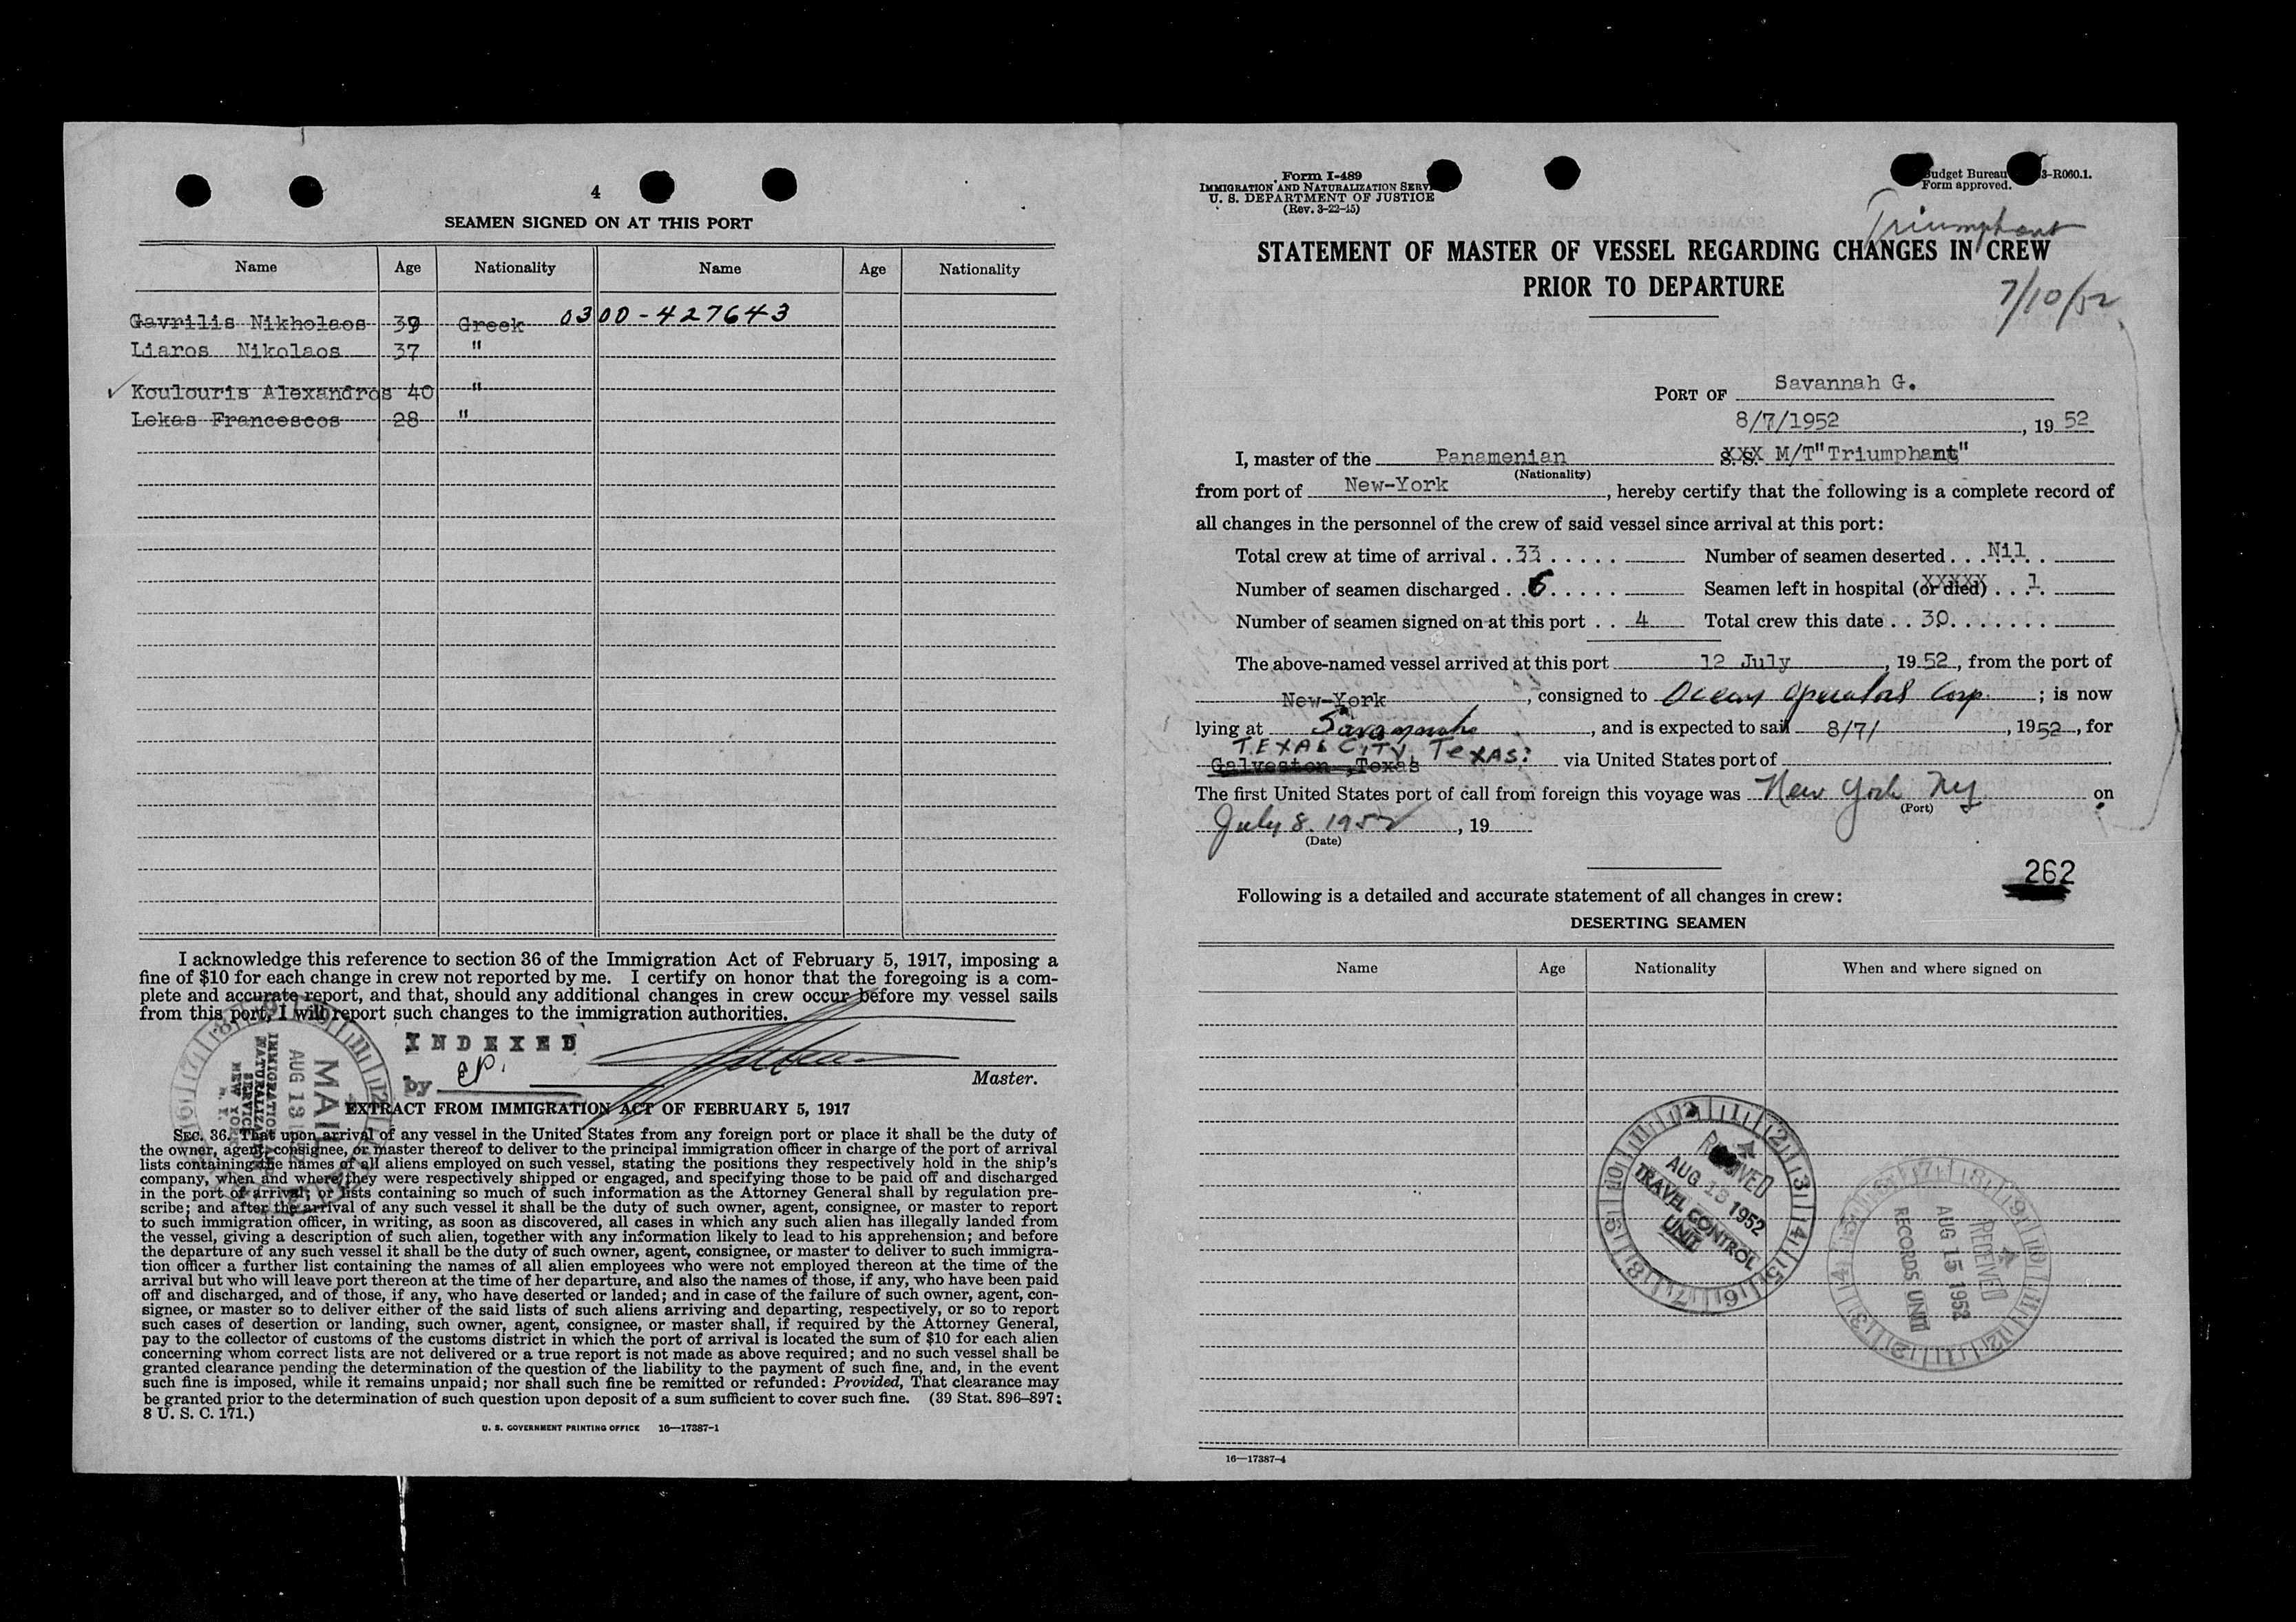 4
SEAMEN SIGNED ON AT THIS PORT
Name Age Nationality Name Age Nationality
Gavrilis Nikholaos 39 Greek 0300-427643
Liaros Nikolaos 37 "
✓ Koulouris Alexandros 40 "
Lekas Francescos 28 "
I acknowledge this reference to section 36 of the Immigration Act of February 5, 1917, imposing a
fine of $10 for each change in crew not reported by me. I certify on honor that the foregoing is a com-
plete and accurate report, and that, should any additional changes in crew occur before my vessel sails
from this port, I will report such changes to the immigration authorities.
INDEXED
by EP.
Master.
MAIL
AUG 13
IMMIGRATION
NATURALIZA
SERVICE
NEW YORK
EXTRACT FROM IMMIGRATION ACT OF FEBRUARY 5, 1917
SEC. 36. That upon arrival of any vessel in the United States from any foreign port or place it shall be the duty of
the owner, agent, consignee, or master thereof to deliver to the principal immigration officer in charge of the port of arrival
lists containing the names of all aliens employed on such vessel, stating the positions they respectively hold in the ship's
company, when and where they were respectively shipped or engaged, and specifying those to be paid off and discharged
in the port of arrival; or lists containing so much of such information as the Attorney General shall by regulation pre-
scribe; and after the arrival of any such vessel it shall be the duty of such owner, agent, consignee, or master to report
to such immigration officer, in writing, as soon as discovered, all cases in which any such alien has illegally landed from
the vessel, giving a description of such alien, together with any information likely to lead to his apprehension; and before
the departure of any such vessel it shall be the duty of such owner, agent, consignee, or master to deliver to such immigra-
tion officer a further list containing the names of all alien employees who were not employed thereon at the time of the
arrival but who will leave port thereon at the time of her departure, and also the names of those, if any, who have been paid
off and discharged, and of those, if any, who have deserted or landed; and in case of the failure of such owner, agent, con-
signee, or master so to deliver either of the said lists of such aliens arriving and departing, respectively, or so to report
such cases of desertion or landing, such owner, agent, consignee, or master shall, if required by the Attorney General,
pay to the collector of customs of the customs district in which the port of arrival is located the sum of $10 for each alien
concerning whom correct lists are not delivered or a true report is not made as above required; and no such vessel shall be
granted clearance pending the determination of the question of the liability to the payment of such fine, and, in the event
such fine is imposed, while it remains unpaid; nor shall such fine be remitted or refunded: Provided, That clearance may
be granted prior to the determination of such question upon deposit of a sum sufficient to cover such fine. (39 Stat. 896–897;
8 U. S. C. 171.)
U. S. GOVERNMENT PRINTING OFFICE 16—17387-1
Form I-489
IMMIGRATION AND NATURALIZATION SERV
U. S. DEPARTMENT OF JUSTICE
(Rev. 3-22-45)
Budget Bureau 3-R060.1.
Form approved.
Triumphant
STATEMENT OF MASTER OF VESSEL REGARDING CHANGES IN CREW
PRIOR TO DEPARTURE
7/10/52
PORT OF Savannah G.
8/7/1952, 19 52
I, master of the Panamenian S. S. XXX M/T"Triumphant"
(Nationality)
from port of New-York, hereby certify that the following is a complete record of
all changes in the personnel of the crew of said vessel since arrival at this port:
Total crew at time of arrival . . 33 . . . . . Number of seamen deserted . . . Nil . .
Number of seamen discharged . . 6 . . . . . Seamen left in hospital (or died) . . . 1
Number of seamen signed on at this port . . 4 Total crew this date . . 30 . . . . . . .
The above-named vessel arrived at this port 12 July, 19 52, from the port of
New-York, consigned to Ocean Operators Corp.; is now
lying at Savannah, and is expected to sail 8/7/, 1952, for
TEXAS CITY, TEXAS:
Galveston, Texas via United States port of
The first United States port of call from foreign this voyage was New York NY on
(Port)
July 8. 1952, 19
(Date)
262
Following is a detailed and accurate statement of all changes in crew:
DESERTING SEAMEN
Name Age Nationality When and where signed on
RECEIVED
AUG 13 1952
TRAVEL CONTROL
UNIT
RECEIVED
AUG 15 1952
RECORDS UNIT
16—17387-4